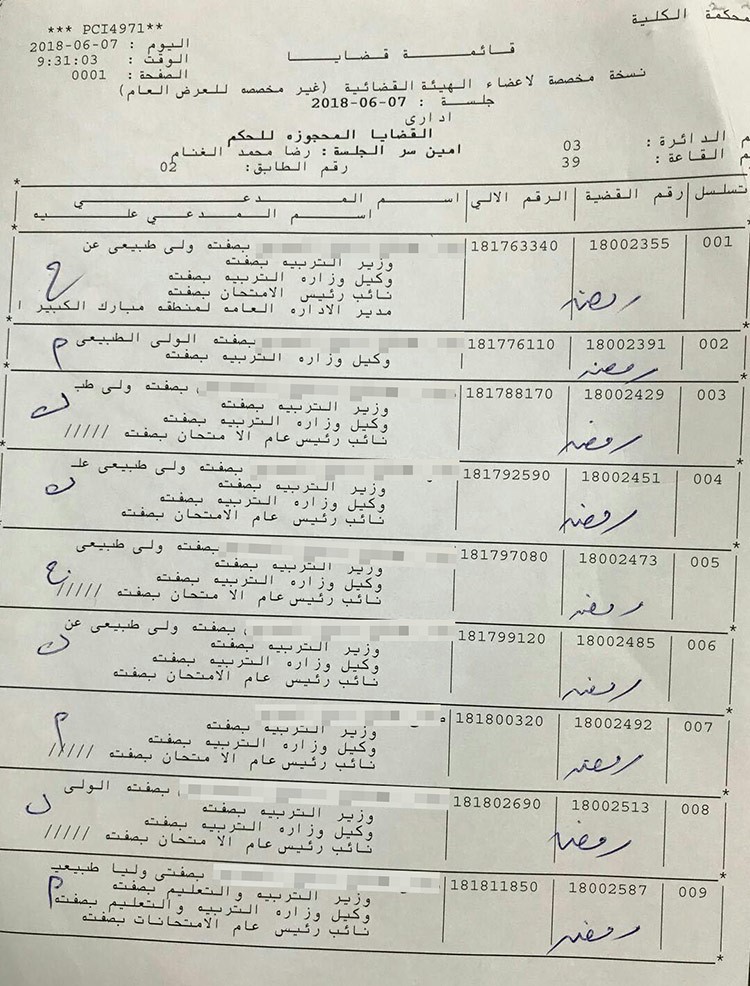 محكمة الكلية
*** PCI4971**
اليوم : 2018-06-07
الوقت : 9:31:03
الصفحة : 0001
قائمة قضايا
نسخة مخصصة لاعضاء الهيئة القضائية (غير مخصصه للعرض العام)
جلسة : 2018-06-07
ادارى
القضايا المحجوزه للحكم
م الدائرة : 03
امين سر الجلسة : رضا محمد الغنام
م القاعة : 39
رقم الطابق : 02
تسلسل رقم القضية الرقم الالي اسم المدعي
اسم المدعي عليه
001 18002355 181763340 بصفته ولى طبيعى عن
وزير التربيه بصفته
وكيل وزاره التربيه بصفته
نائب رئيس الامتحان بصفته
مدير الاداره العامه لمنطقه مبارك الكبير ا
رفضه
ح
002 18002391 181776110 بصفته الولى الطبيعى
وكيل وزاره التربيه بصفته
رفضه
م
003 18002429 181788170 بصفته ولى طب
وزير التربيه بصفته
وكيل وزاره التربيه بصفته
نائب رئيس عام الا متحان بصفته /////
رفضه
ك
004 18002451 181792590 بصفته ولى طبيعى علـ
وزير التربيه بصفته
وكيل وزاره التربيه بصفته
نائب رئيس عام الامتحان بصفته
رفضه
ك
005 18002473 181797080 بصفته ولى طبيعى
وزير التربيه بصفته
وكيل وزاره التربيه بصفته
نائب رئيس عام الا متحان بصفته /////
رفضه
ح
006 18002485 181799120 بصفته ولى طبيعى عن
وزير التربيه بصفته
وكيل وزاره التربيه بصفته
نائب رئيس عام الامتحان بصفته
رفضه
ك
007 18002492 181800320
وزير التربيه بصفته
وكيل وزاره التربيه بصفته
نائب رئيس عام الا متحان بصفته /////
رفضه
م
008 18002513 181802690 بصفته الولى
وزير التربيه بصفته
وكيل وزاره التربيه بصفته
نائب رئيس عام الا متحان بصفته /////
رفضه
ك
009 18002587 181811850 بصفتى وليا طبيعيـ
وزير التربيه والتعليم بصفته
وكيل وزاره التربيه والتعليم بصفته
نائب رئيس عام الامتحانات بصفته
رفضه
م